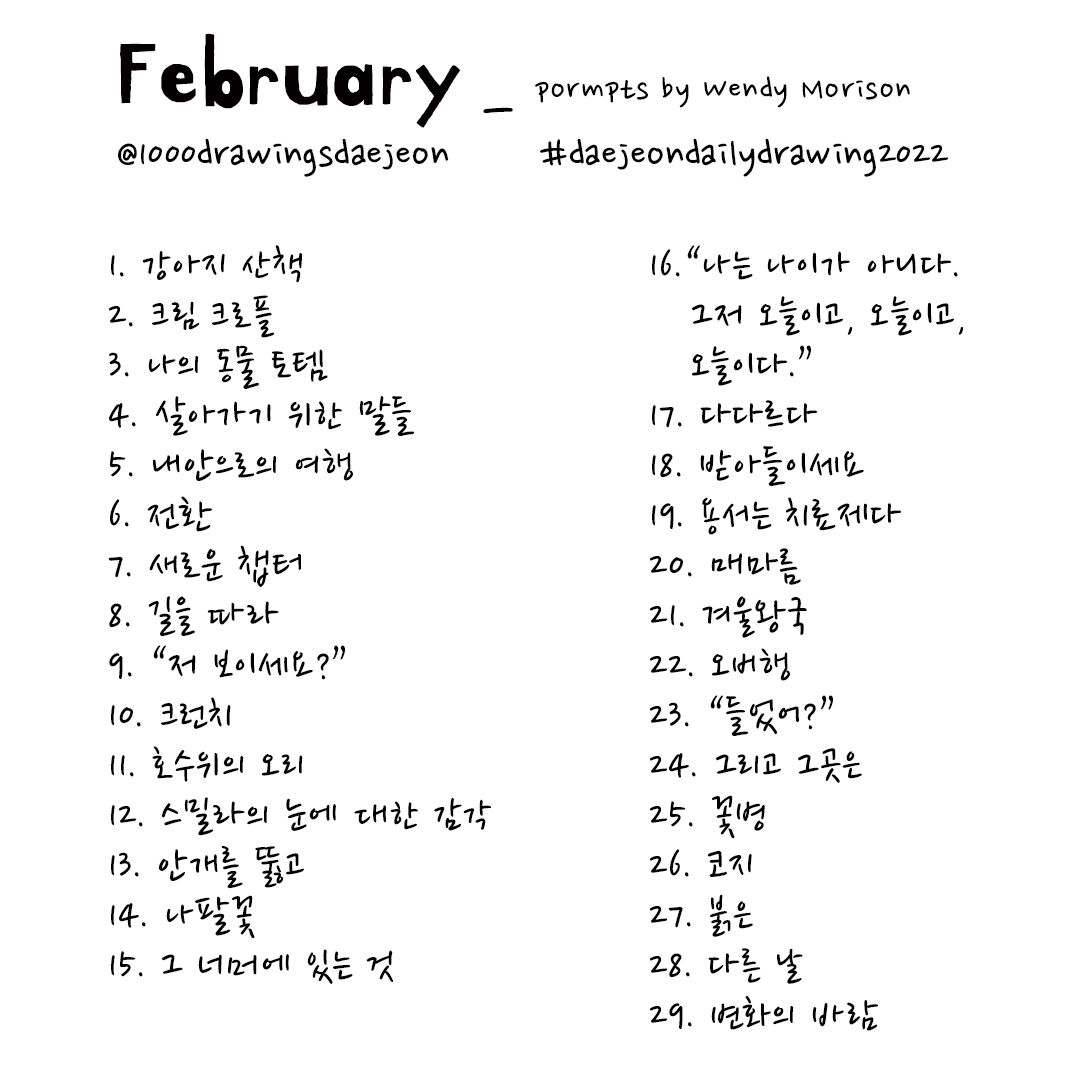 February _ pormpts by Wendy Morison
@1000drawingsdaejeon #daejeondailydrawing2022
1. 강아지 산책
2. 크림 크로플
3. 나의 동물 토템
4. 살아가기 위한 말들
5. 내안으로의 여행
6. 전환
7. 새로운 챕터
8. 길을 따라
9. “저 보이세요?”
10. 크런치
11. 호수위의 오리
12. 스밀라의 눈에 대한 감각
13. 안개를 뚫고
14. 나팔꽃
15. 그 너머에 있는 것
16. “나는 나이가 아니다.
그저 오늘이고, 오늘이고,
오늘이다.”
17. 다다르다
18. 받아들이세요
19. 용서는 치료제다
20. 매마름
21. 겨울왕국
22. 오버행
23. “들었어?”
24. 그리고 그곳은
25. 꽃병
26. 코지
27. 붉은
28. 다른 날
29. 변화의 바람